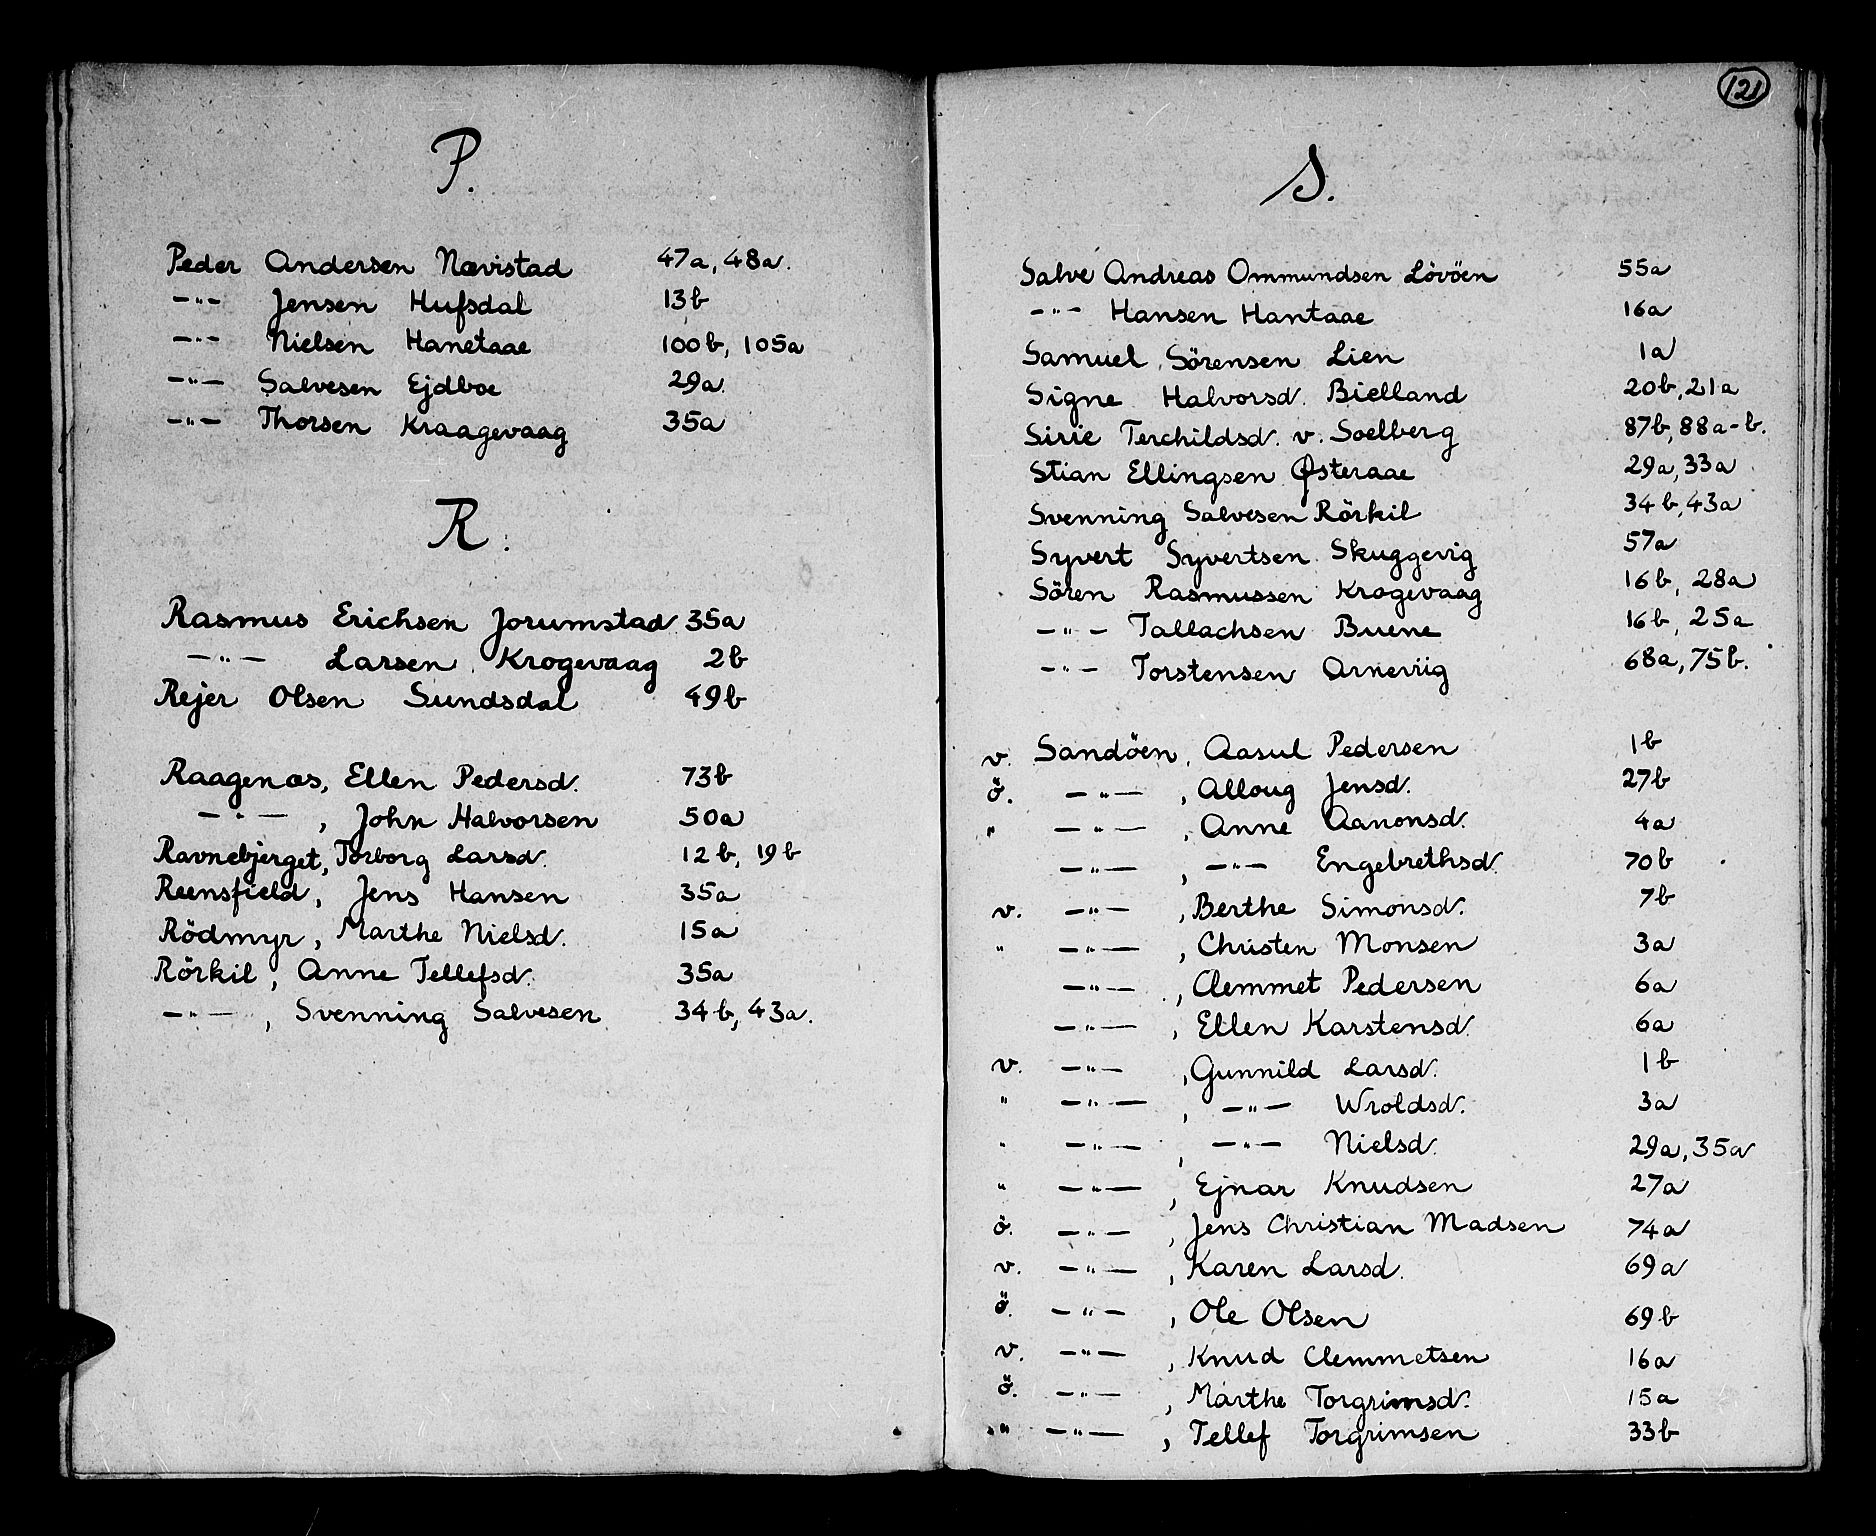 P.
Peder Andersen Nævistad 47a, 48a.
-"- Jensen Hufsdal 13b
-"- Nielsen Hanetaae 100b, 105a
-"- Salvesen Ejdboe 29a.
-"- Thorsen Kraagevaag 35a
R.
Rasmus Erichsen Jorumstad 35a
-"- Larsen Krogevaag 2b
Rejer Olsen Sundsdal 49b
Raagenæs, Ellen Pedersd. 73b
-"-, John Halvorsen 50a
Ravnebjerget, Torborg Larsd. 12b, 19b
Reensfield, Jens Hansen 35a
Rödmyr, Marthe Nielsd. 15a
Rörkil, Anne Tellefsd. 35a
-"-, Svenning Salvesen 34b, 43a.
121
S.
Salve Andreas Ommundsen Lövöen 55a
-"- Hansen Hantaae 16a
Samuel Sörensen Lien 1a
Signe Halvorsd. Bielland 20b, 21a
Sirie Terchildsd. v. Soelberg 87b, 88a-b.
Stian Ellingsen Østeraae 29a, 33a
Svenning Salvesen Rörkil 34b, 43a
Syvert Syvertsen Skuggevig 57a
Sören Rasmussen Krogevaag 16b, 28a
-"- Tallachsen Buene 16b, 25a
-"- Torstensen Arneviig 68a, 75b.
v. Sandöen, Aasul Pedersen 1b
ö. -"-, Alloug Jensd. 27b
" -"-, Anne Aanonsd. 4a
-"-, -"- Engebrethsd. 70b
v. -"-, Berthe Simonsd. 7b
" -"-, Christen Monsen 3a
-"-, Clemmet Pedersen 6a
-"-, Ellen Karstensd. 6a
v. -"-, Gunnild Larsd. 1b
" -"-, -"- Wroldsd. 3a
" -"-, -"- Nielsd. 29a, 35a
" -"-, Ejnar Knudsen 27a
ö. -"-, Jens Christian Madsen 74a
v. -"-, Karen Larsd. 69a
ö. -"-, Ole Olsen 69b
v. -"-, Knud Clemmetsen 16a
ö. -"-, Marthe Torgrimsd. 15a
" -"-, Tellef Torgrimsen 33b